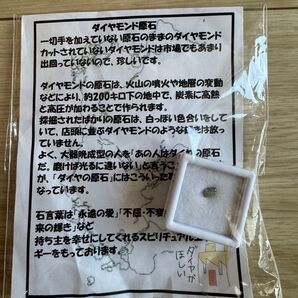 ダイヤモンド原石
一切手を加えていない原石のままのダイヤモンド
カットされていないダイヤモンドは市場でもあまり
出回っていないので、珍しいです。
ダイヤモンドの原石は、火山の噴火や地層の変動
などにより、約200キロ下の地中で、炭素に高熱
と高圧が加わることで作られます。
採掘されたばかりの原石は、白っぽい色合いをして
いて、店頭に並ぶダイヤモンドのような
放って
いません。
よく、大器晩成型の人を「あの人はダイヤの原石
だ、磨けば光るに違いない」と言う
が、「ダイヤの原石」にはこういった
なっています。
石言葉は「永遠の愛」「不屈・不変
来の輝き」など
持ち主を幸せにしてくれるスピリチュアル
ギーをもっております。
ダイヤが
ほしい